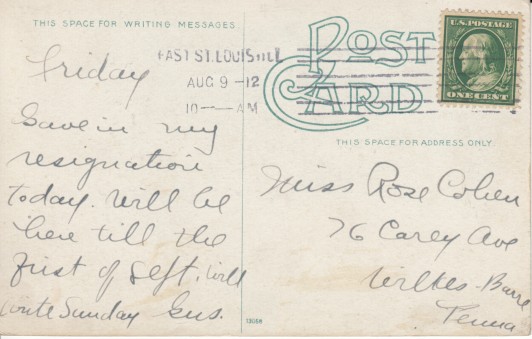 THIS SPACE FOR WRITING MESSAGES
Friday
Gave in my
resignation
today. Will be
here till the
first of Sept. Will
write Sunday Gus.
POST
CARD
EAST ST. LOUIS ILL
AUG 9 - 12
10 - AM
U.S. POSTAGE
ONE CENT
THIS SPACE FOR ADDRESS ONLY.
Miss Rose Cohen
76 Carey Ave
Wilkes-Barre
Penna